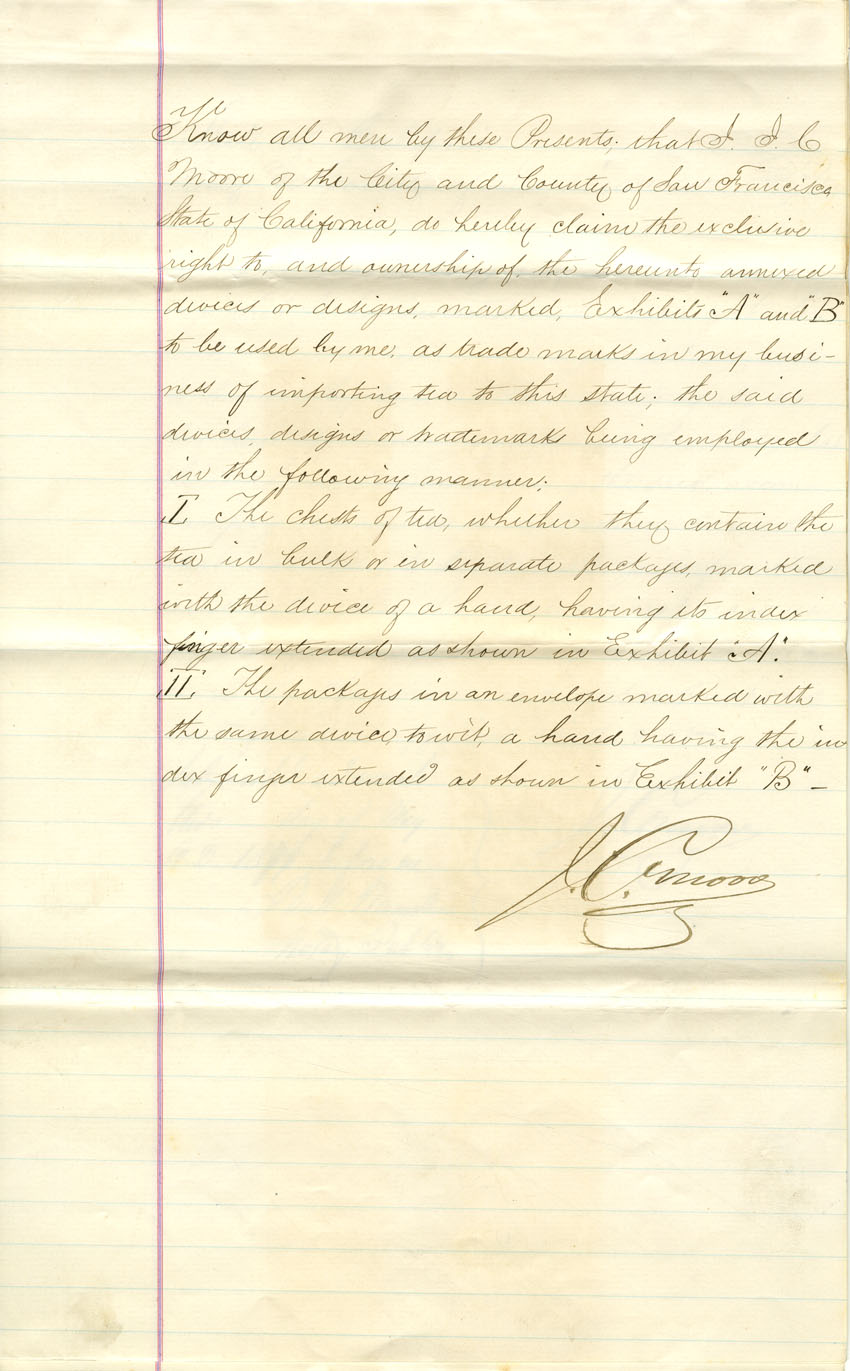 Know all men by these Presents; that I. J. C
Moore of the City and County of San Francisco
State of California, do hereby claim the exclusive
right to, and ownership of, the hereunto annexed
devices or designs, marked, Exhibits "A" and "B"
to be used by me, as trade marks in my busi-
ness of importing tea to this state; the said
devices, designs or trademarks being employed
in the following manner;
I. The chests of tea, whether they contain the
tea in bulk or in separate packages, marked
with the device of a hand, having its index
finger extended as shown in Exhibit "A".
II. The packages in an envelope marked with
the same device, to wit, a hand having the in
dex finger extended as shown in Exhibit "B" _
J. C. Moore